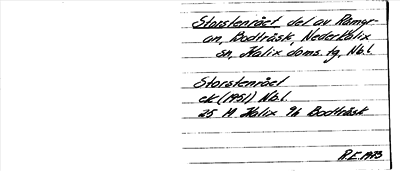 Storstenröet del av Ramgr-
an, Bodträsk, Nederkalix
sn, Kalix doms. tg, Nb.l.
Storstenröet
ek (1951) Nb.l.
25 M Kalix 9b Bodträsk
R.E. 1973